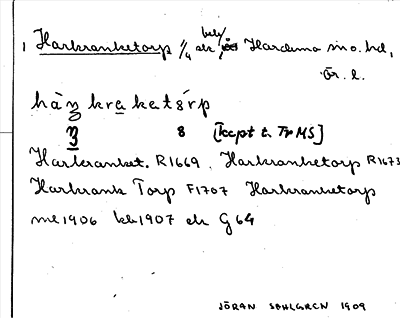 1 Harkranketorp 1/4 ek Hardemo sn o. hd,
Ör. l.
hàn kraketorp
8 [kcpt t. Tr MS]
Harkrankat. R1669. Harkranketorp R1673
Harkrank Torp F1707 Harkranketorp
me1906 kb1907 ek G64
JÖRAN SAHLGREN 1909